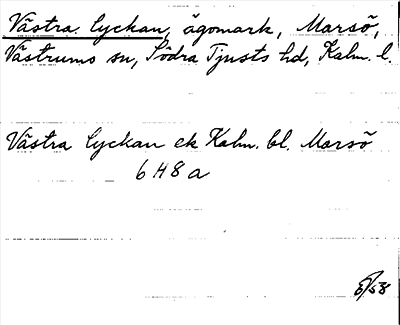 Västra lyckan, ägomark, Marsö,
Västrums sn, Södra Tjusts hd, Kalm. l.
Västra lyckan ek Kalm. bl. Marsö
6 H 8 a